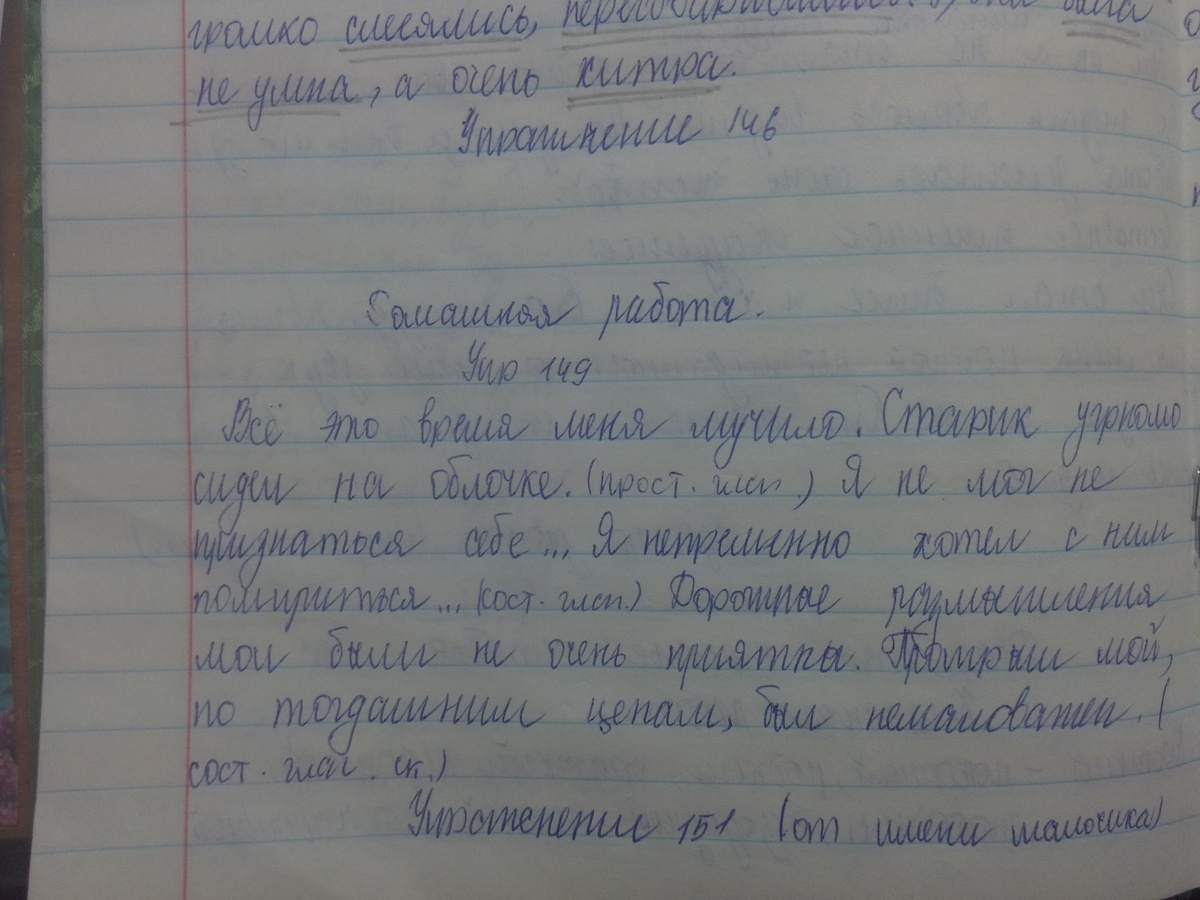 громко смеялись, была
не умна, а очень хитра.
Упражнение 146
Домашняя работа.
Упр 149
Всё это время меня мучило. Старик угрюмо
сидел на облочке. (прост. глаг.) Я не мог не
признаться себе... Я непременно хотел с ним
помириться... (сост. глаг.) Дорожные размышления
мои были не очень приятны. Проигрыш мой,
по тогдашним ценам, был немаловажен. (
сост. глаг. ск.)
Упражнение 151 (от имени мальчика)